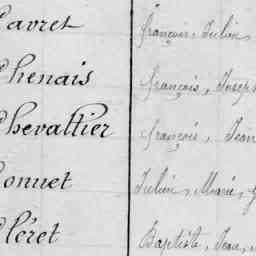 Cavret françois, Julien,
Chenais françois, Joseph
Chevallier françois, Jean
Bonnet Julien, Marie,
Cléret Baptiste, Jean,